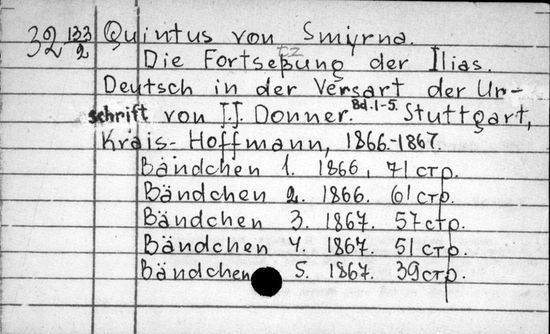 32 133/2 Quintus von Smyrna.
Die Fortsetzung der Ilias.
Deutsch in der Versart der Ur-
schrift von J.J. Donner. Bd. 1-5. Stuttgart,
Krais-Hoffmann, 1866-1867.
Bändchen 1. 1866, 71 стр.
Bändchen 2. 1866. 61 стр.
Bändchen 3. 1867. 57 стр.
Bändchen 4. 1867. 51 стр.
Bändchen 5. 1867. 39 стр.